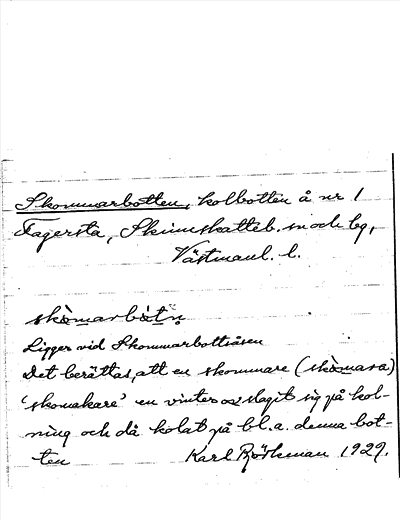 Skommarbotten, kolbotten å nr 1
Fagersta, Skinnskatteb. sn och bg,
Västmanl. l.
skòmarbòtn̥
Ligger vid Skommarbottsåsen
Det berättas, att en skommare (skòmara)
'skomakare' en vinter slagit sig på kol-
ning och då kolat på bl. a. denna bot-
ten Karl Björkman 1929.